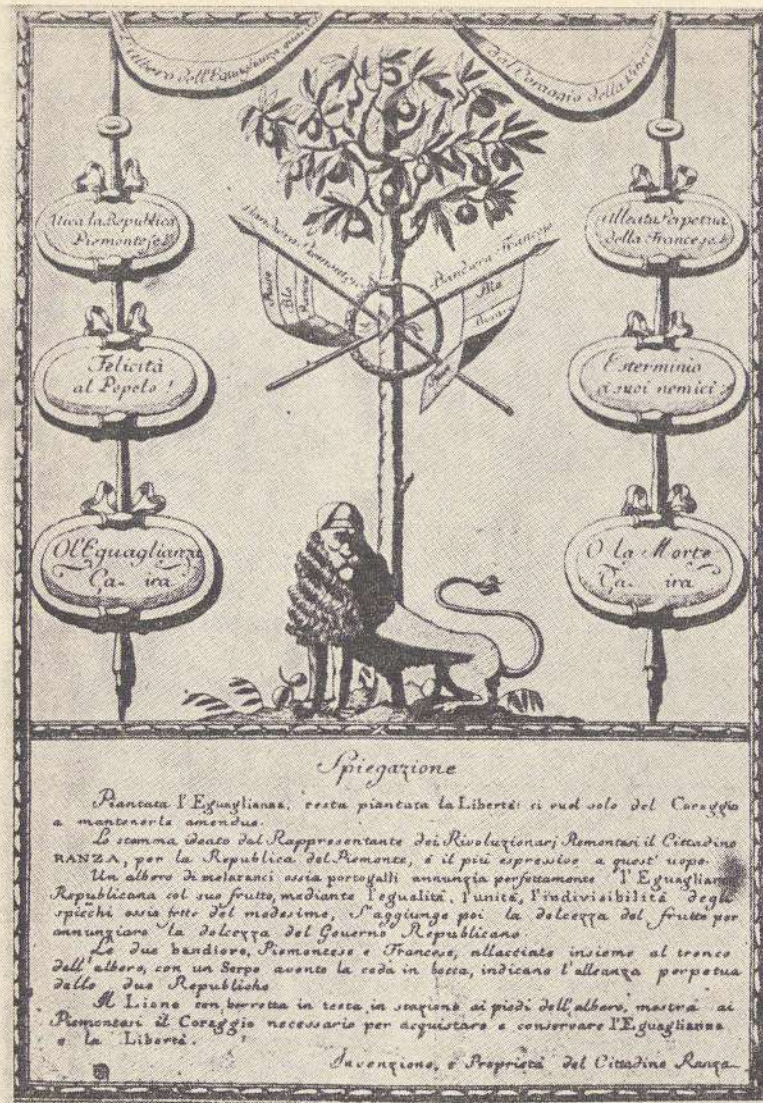 L'Albero dell'Eguaglianza
dal Coraggio della Libertà
Viva la Republica
Piemontese!
Alleata Perpetua
della Francese!
Bandiera Piemontese
Bandiera Francese
Rosso
Blo
Rancio
Blo
Bianco
Rosso
Felicità
al Popolo!
Esterminio
ai suoi nemici!
O l'Eguaglianza
Ça-ira
O la Morte
Ça-ira
Spiegazione
Piantata l'Eguaglianza, resta piantata la Libertà: ci vuol solo del Coraggio
a mantenerle amendue.
Lo stemma ideato dal Rappresentante dei Rivoluzionarj Piemontesi il Cittadino
RANZA, per la Republica del Piemonte, é il piú espressivo a quest' uopo.
Un albero di melaranci ossia portogalli annunzia perfettamente l'Eguaglianza
Republicana col suo frutto, mediante l'egualità, l'unità, l'indivisibilità degli
spicchi ossia fette del medesimo, S'aggiunge poi la dolcezza del frutto per
annunziare la dolcezza del Governo Republicano.
Le due bandiere, Piemontese e Francese, allacciate insieme al tronco
dell'albero, con un Serpe avente la coda in bocca, indicano l'alleanza perpetua
delle due Republiche
Il Lione con berretta in testa, in stazione ai piedi dell'albero, mostra ai
Piemontesi il Coraggio necessario per acquistare e conservare l'Eguaglianza
e la Libertà.
Invenzione, e Proprietà del Cittadino Ranza